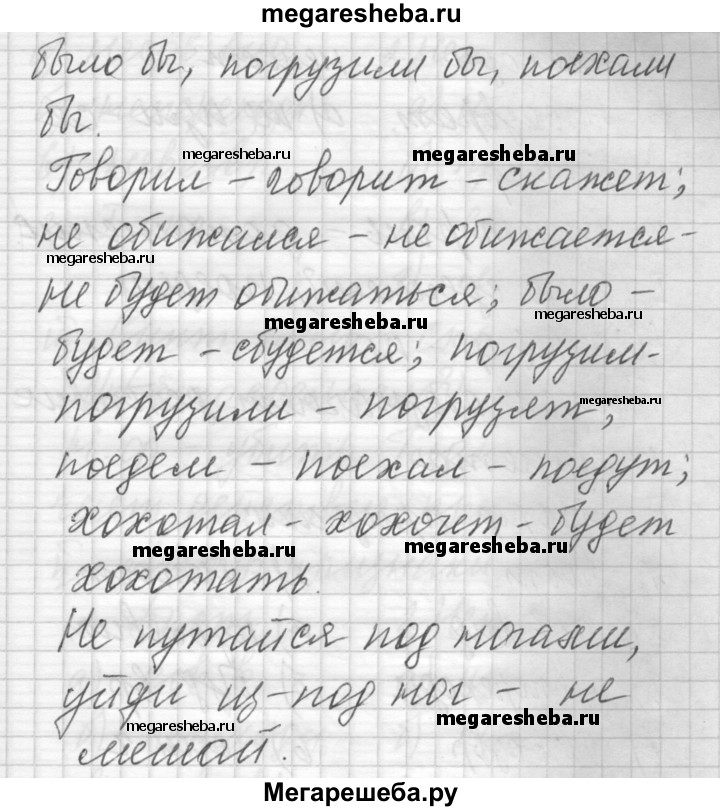 megaresheba.ru
было бы, погрузили бы, поехали
бы.
megaresheba.ru megaresheba.ru
Говорил – говорит – скажет;
не обижался – не обижается –
megaresheba.ru
не будет обижаться; было –
megaresheba.ru megaresheba.ru
будет – сбудется; погрузим –
погрузили – погрузят;
megaresheba.ru
поедем – поехал – поедут;
хохотал – хохочет – будет
megaresheba.ru megaresheba.ru
хохотать.
Не путайся под ногами,
уйди из-под ног – не
megaresheba.ru megaresheba.ru
мешай.
Мегарешеба.ру